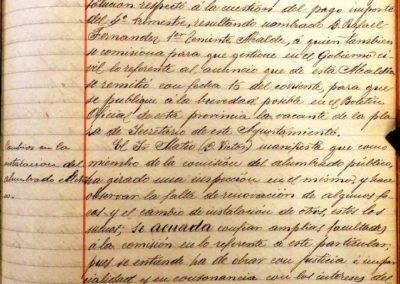 solucion respecto á la cuestion del pago importe
del 4º trimestre, resultando nombrado D. Rafael
Fernandez, 1er Teniente Alcalde, á quien tambien
se comisiona para que gestione en el Gobierno ci-
vil lo referente al anuncio que de esta Alcaldia
se remitió con fecha 15 del corriente, para que
se publique á la brevedad posible en el Boletin
Oficial de esta provincia la vacante de la pla-
za de Secretario de este Ayuntamiento.
Cambios en la
instalacion del
alumbrado
El Sr. (D. Victor) manifiesta que como
miembro de la comisión del alumbrado público,
ha girado una inspección en el mismo, y hace
observar la falta de renovación de algunos fo-
cos y el cambio de instalación de otros,
se acuerda confiar amplias facultades
á la comisión en lo referente á este particular,
pues se entiende ha de obrar con justicia é impar-
cialidad y en consonancia con los intereses del